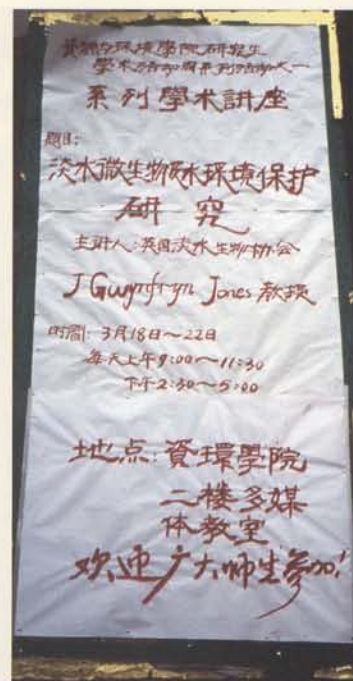 資源與环境學院研究生
學术活动周系列活动之一
系列學术講座
题目:
淡水微生物及水环境保护
研究
主讲人:英国淡水生物协会
J Gwynfryn Jones 教授
时间:3月18日~22日
每天上午9:00~11:30
下午2:30~5:00
地点:資環學院
二楼多媒
体教室
欢迎广大师生参加!